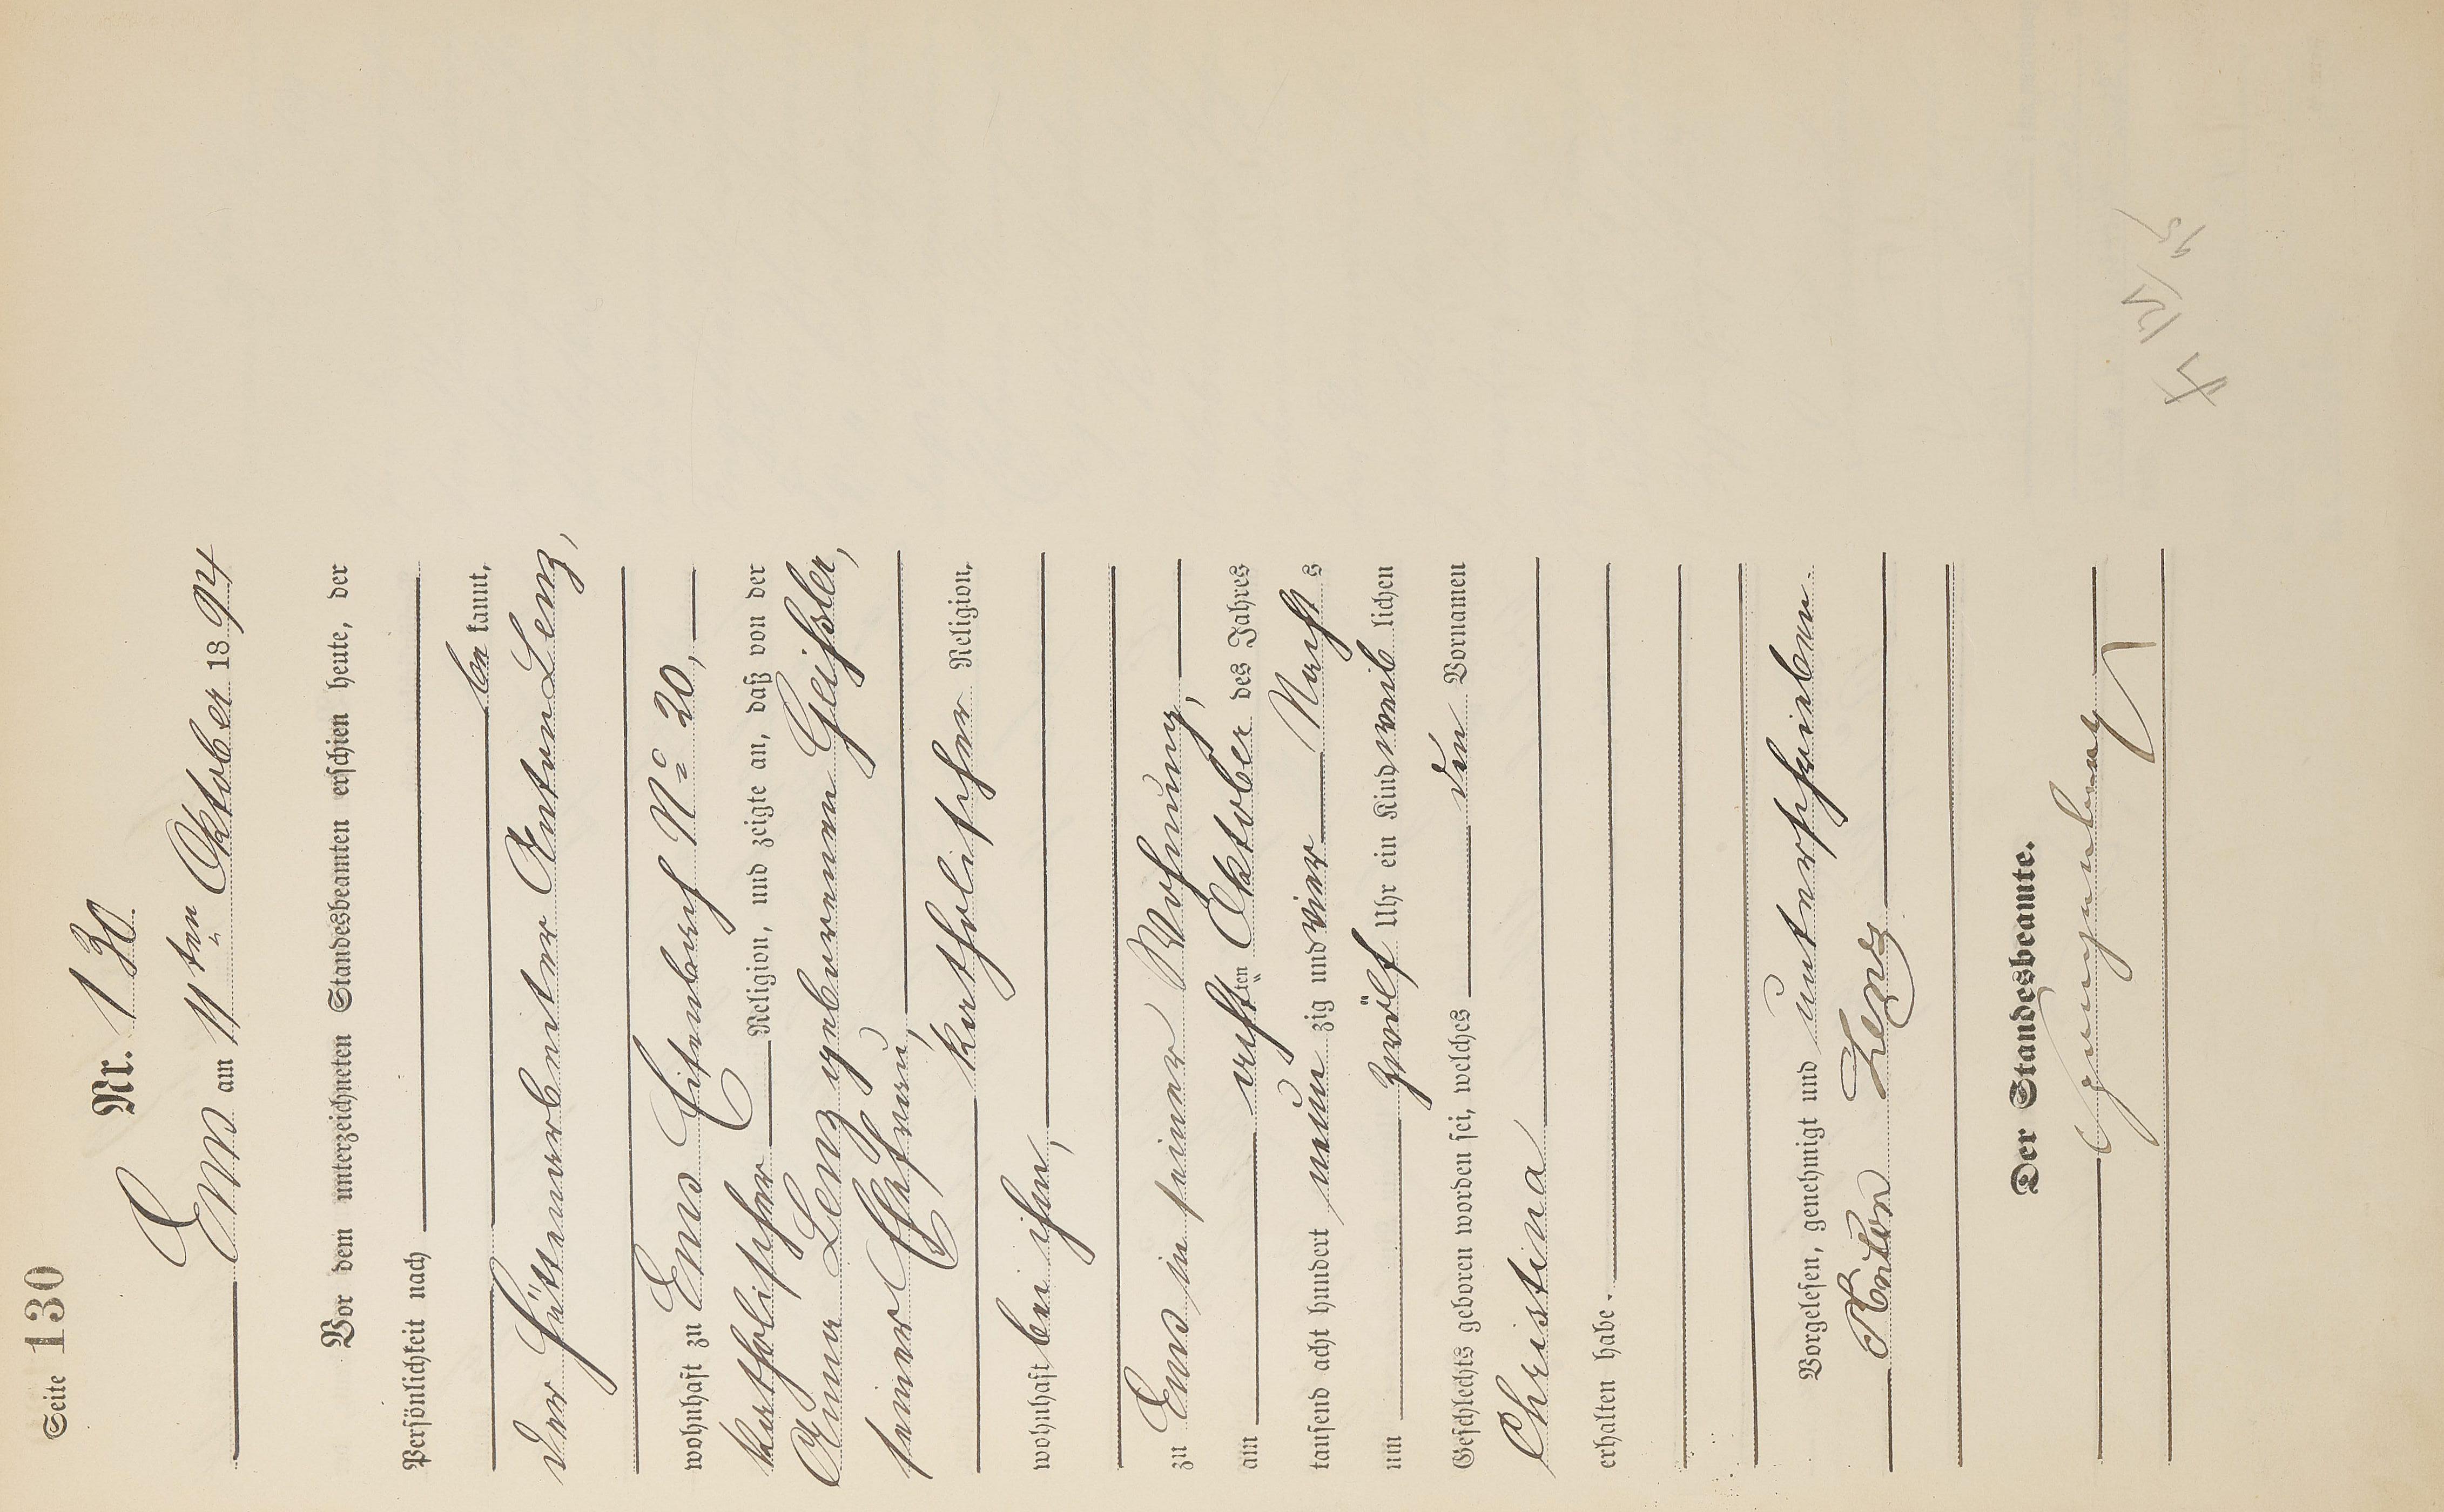 Seite 130
Nr. 130.
Ems am 11ten Oktober 1894
Vor dem unterzeichneten Standesbeamten erschien heute, der
Persönlichkeit nach
bekannt,
der Hüttenarbeiter Anton Lenz,
wohnhaft zu Ems Eisenbach No 20,
katholischer Religion, und zeigte an, daß von der
Anna Lenz geborenen Geißler,
seiner Ehefrau,
katholischer Religion,
wohnhaft bei ihm,
zu Ems in seiner Wohnung,
am achtten Oktober des Jahres
tausend acht hundert neunzig und vier Nachts
um zwölf Uhr ein Kind weiblichen
Geschlechts geboren worden sei, welches den Vornamen
Christina
erhalten habe.
Vorgelesen, genehmigt und unterschrieben.
Anton Lenz
Der Standesbeamte.